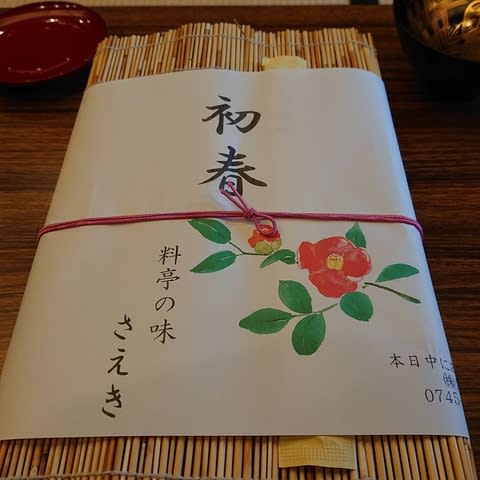 初春
料亭の味
さえき
本日中に
㈱
0745